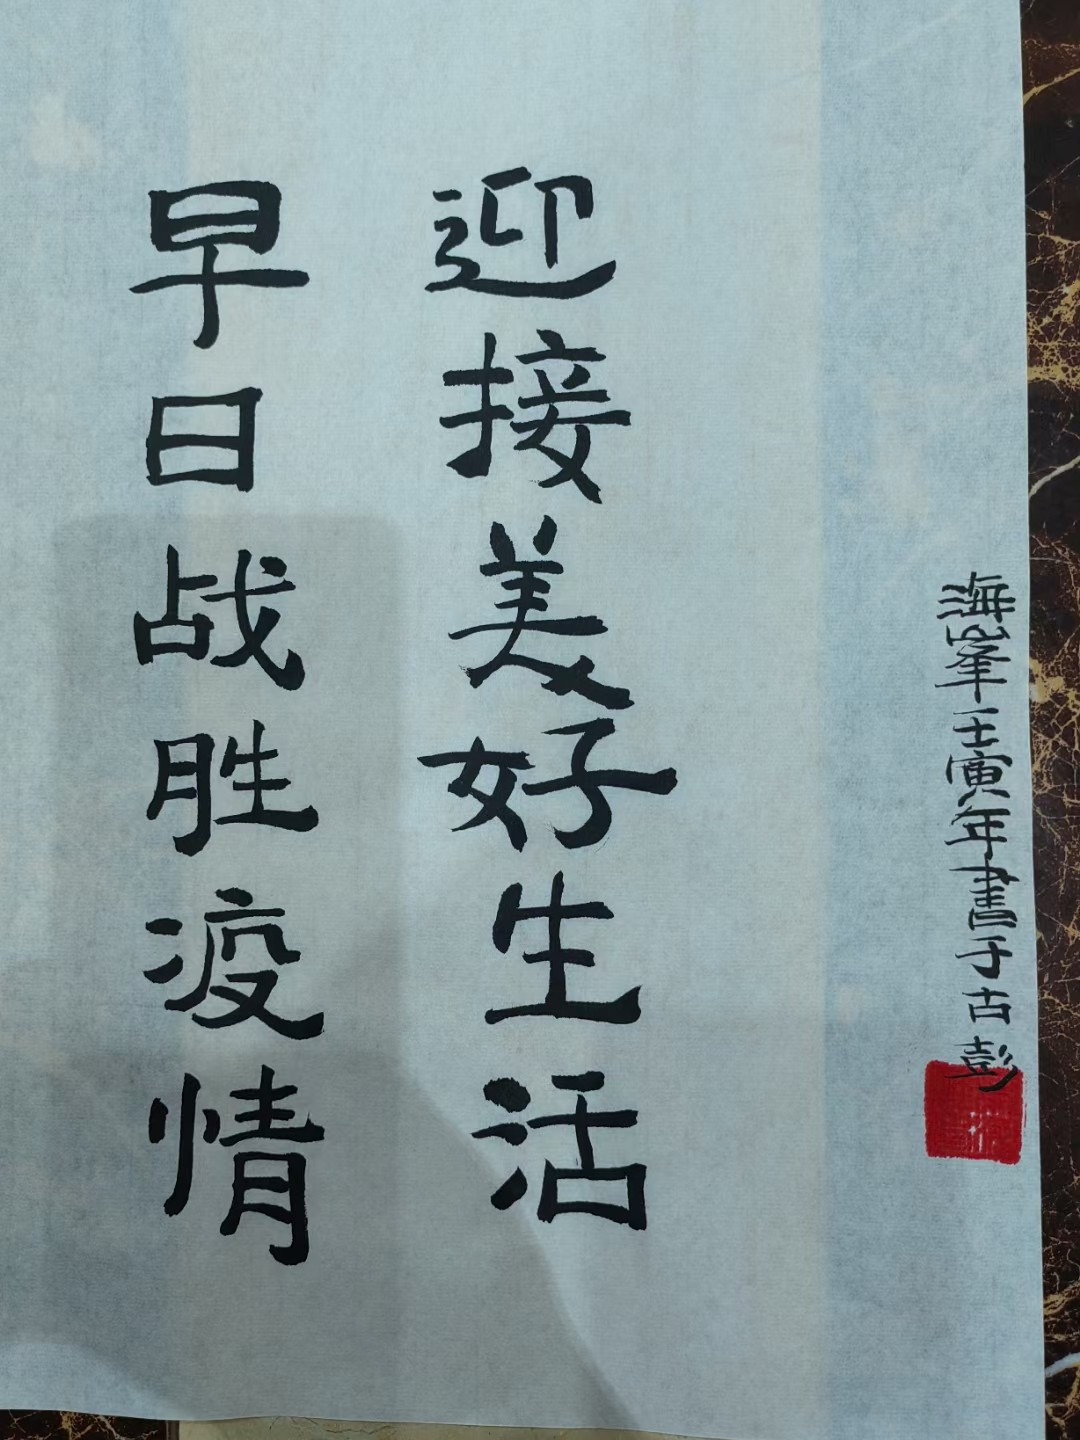 早日战胜疫情
迎接美好生活
海峯壬寅年書于古彭